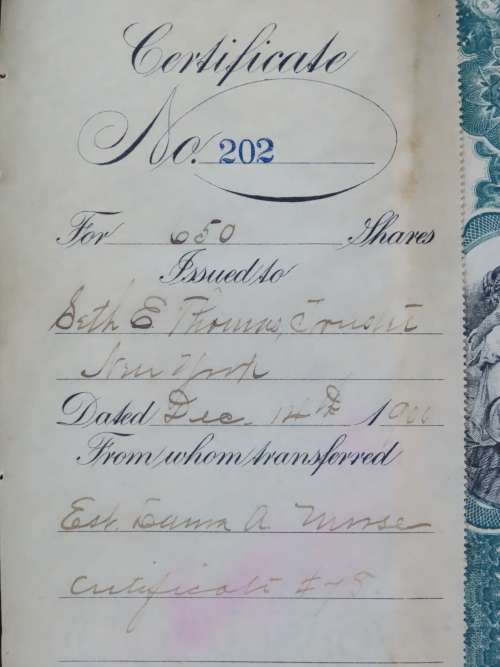 Certificate
No. 202
For 650 Shares
Issued to
Seth E Thomas, Trustee
New York
Dated Dec. 14th 1900
From whom transferred
Est. Laura A Morse
Certificate #